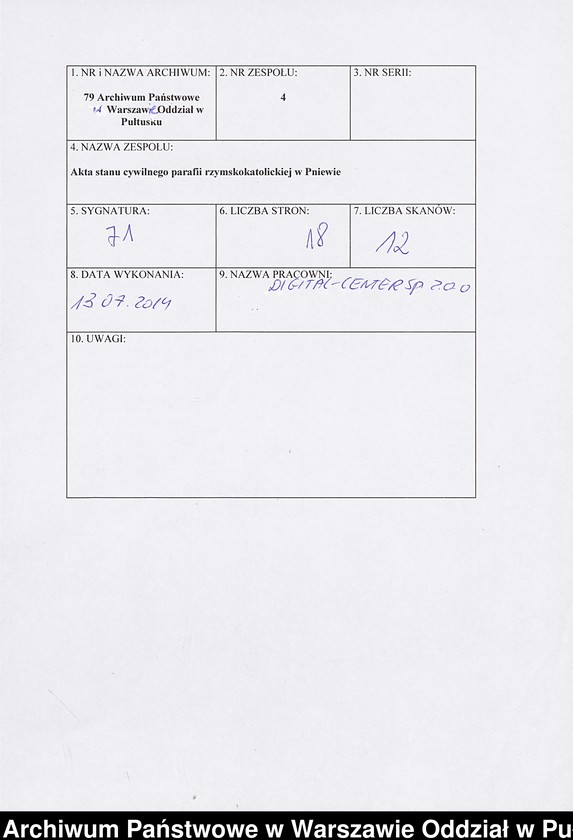 1. NR i NAZWA ARCHIWUM:
79 Archiwum Państwowe
w Warszawie Oddział w
Pułtusku
2. NR ZESPOŁU:
4
3. NR SERII:
4. NAZWA ZESPOŁU:
Akta stanu cywilnego parafii rzymskokatolickiej w Pniewie
5. SYGNATURA:
71
6. LICZBA STRON:
18
7. LICZBA SKANÓW:
12
8. DATA WYKONANIA:
13 07. 2014
9. NAZWA PRACOWNI:
DIGITAL-CENTER SP Z.O.O
10. UWAGI:
Archiwum Państwowe w Warszawie Oddział w Pu